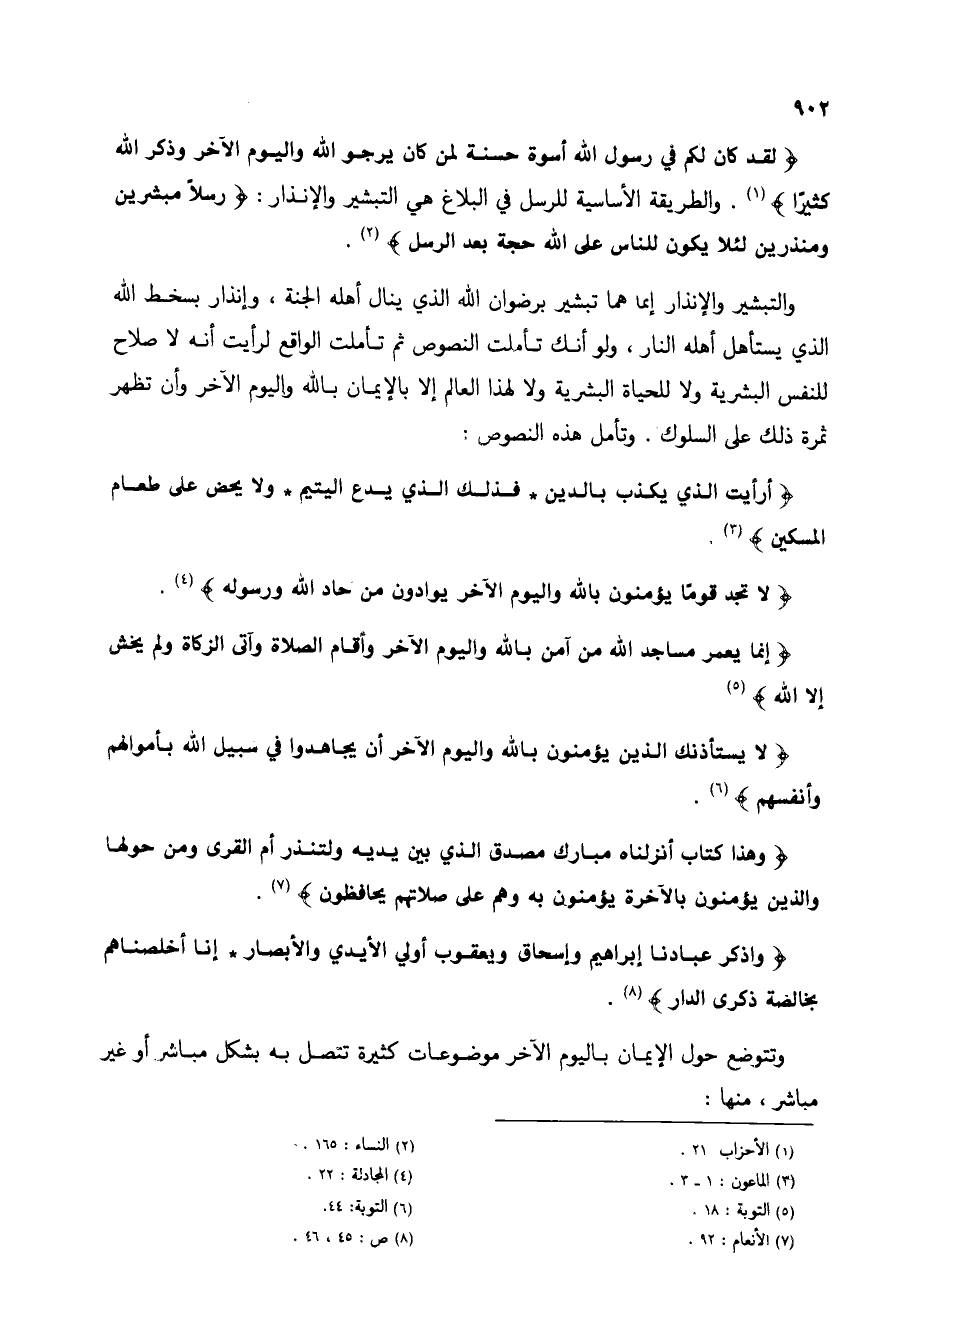 ٩٠٢
﴿ لقد كان لكم في رسول الله أسوة حسنة لمن كان يرجو الله واليوم الآخر وذكر الله
كثيرًا ﴾ (١) . والطريقة الأساسية للرسل في البلاغ هي التبشير والإنذار : ﴿ رسلاً مبشرين
ومنذرين لئلا يكون للناس على الله حجة بعد الرسل ﴾ (٢) .
والتبشير والإنذار إنما هما تبشير برضوان الله الذي ينال أهله الجنة ، وإنذار بسخط الله
الذي يستأهل أهله النار ، ولو أنك تأملت النصوص ثم تأملت الواقع لرأيت أنه لا صلاح
للنفس البشرية ولا للحياة البشرية ولا لهذا العالم إلا بالإيمان بالله واليوم الآخر وأن تظهر
ثمرة ذلك على السلوك . وتأمل هذه النصوص :
﴿ أرأيت الذي يكذب بالدين * فذلك الذي يدع اليتيم * ولا يحض على طعام
المسكين ﴾ (٣) .
﴿ لا تجد قومًا يؤمنون بالله واليوم الآخر يوادون من حاد الله ورسوله ﴾ (٤) .
﴿ إنما يعمر مساجد الله من آمن بالله واليوم الآخر وأقام الصلاة وآتى الزكاة ولم يخش
إلا الله ﴾ (٥)
﴿ لا يستأذنك الذين يؤمنون بالله واليوم الآخر أن يجاهدوا في سبيل الله بأموالهم
وأنفسهم ﴾ (٦) .
﴿ وهذا كتاب أنزلناه مبارك مصدق الذي بين يديه ولتنذر أم القرى ومن حولها
والذين يؤمنون بالآخرة يؤمنون به وهم على صلاتهم يحافظون ﴾ (٧) .
﴿ واذكر عبادنا إبراهيم وإسحاق ويعقوب أولي الأيدي والأبصار * إنا أخلصناهم
بخالصة ذكرى الدار ﴾ (٨) .
وتتوضع حول الإيمان باليوم الآخر موضوعات كثيرة تتصل به بشكل مباشر أو غير
مباشر ، منها :
(١) الأحزاب ٢١ .
(٢) النساء : ١٦٥ .
(٣) الماعون : ١ - ٣ .
(٤) المجادلة : ٢٢ .
(٥) التوبة : ١٨ .
(٦) التوبة: ٤٤.
(٧) الأنعام : ٩٢ .
(٨) ص : ٤٥ ، ٤٦ .